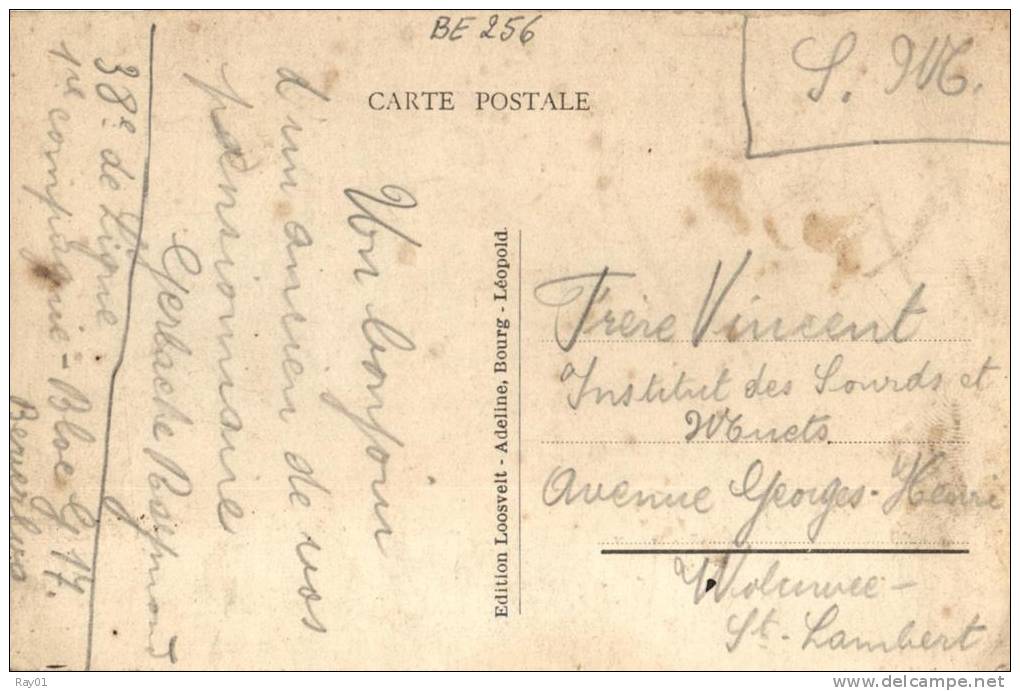 BE 256
S. M.
CARTE POSTALE
Un bonjour
d'un ancien de vos
pensionnaire
Gerbache Raymond
38e de Ligne
1re compagnie - Bloc G 17.
Beverloo
Edition Loosvelt - Adeline, Bourg - Léopold.
Frère Vincent
Institut des Sourds et
Muets
Avenue Georges-Henri
Woluwee -
St. Lambert
Ray01
http://www.delcampe.net